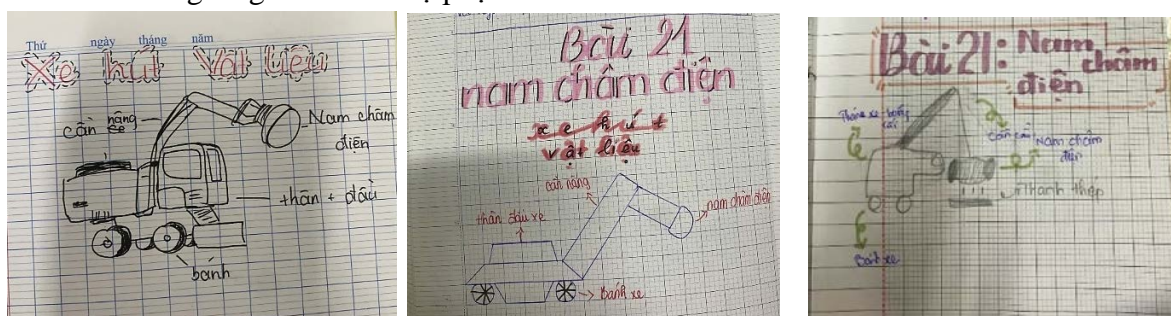 Thứ ngày tháng năm
Xe hút Vật liệu
cần nâng xe
Nam châm điện
thân + đầu
bánh
Bài 21
nam châm điện
xe hút
vật liệu
cần nâng
thân đầu xe
nam châm điện
Bánh xe
Bài 21: Nam châm điện
Thân xe bằng
Cần cẩu
Nam châm điện
thanh thép
Bánh xe